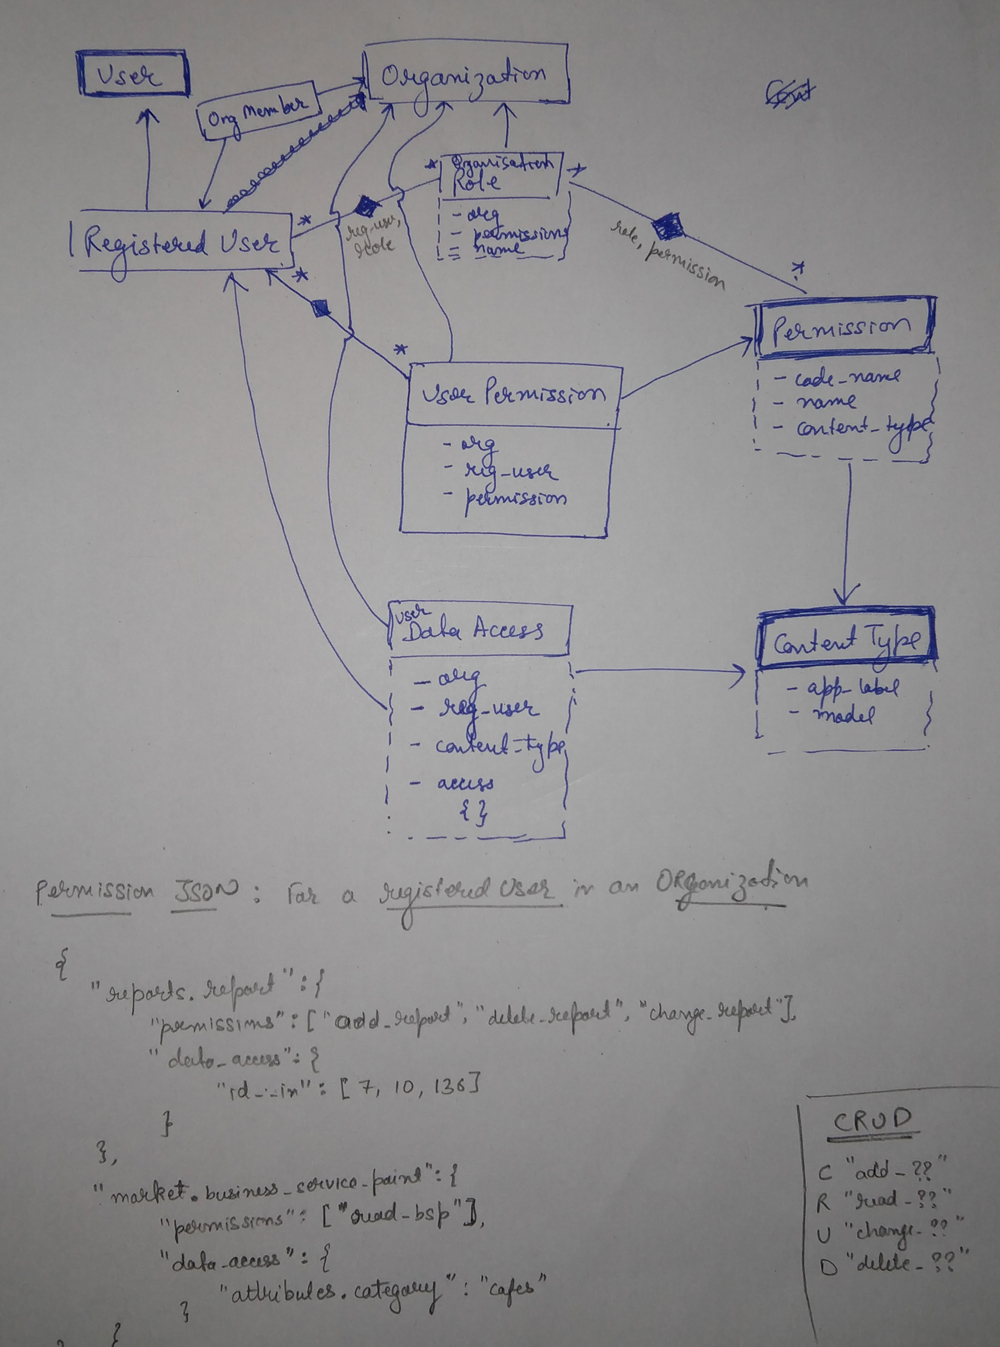 User
Organization
Org Member
Organisation
Role
- org
- permissions
- name
Registered User
*
*
*
*
*
*
reg-user,
role
role, permission
Permission
- code_name
- name
- content_type
User Permission
- org
- reg-user
- permission
User
Data Access
- org
- reg-user
- content-type
- access
{ }
Content Type
- app_label
- model
Permission JSON : For a registered User in an Organization
{
"reports.report" : {
"permissions" : ["add_report", "delete_report", "change_report"],
"data_access" : {
"id__in" : [ 7, 10, 136]
}
},
"market.business_service_point" : {
"permissions" : ["read-bsp"],
"data_access" : {
"attributes.category" : "cafes"
}
}
CRUD
C "add_??"
R "read_??"
U "change_??"
D "delete_??"